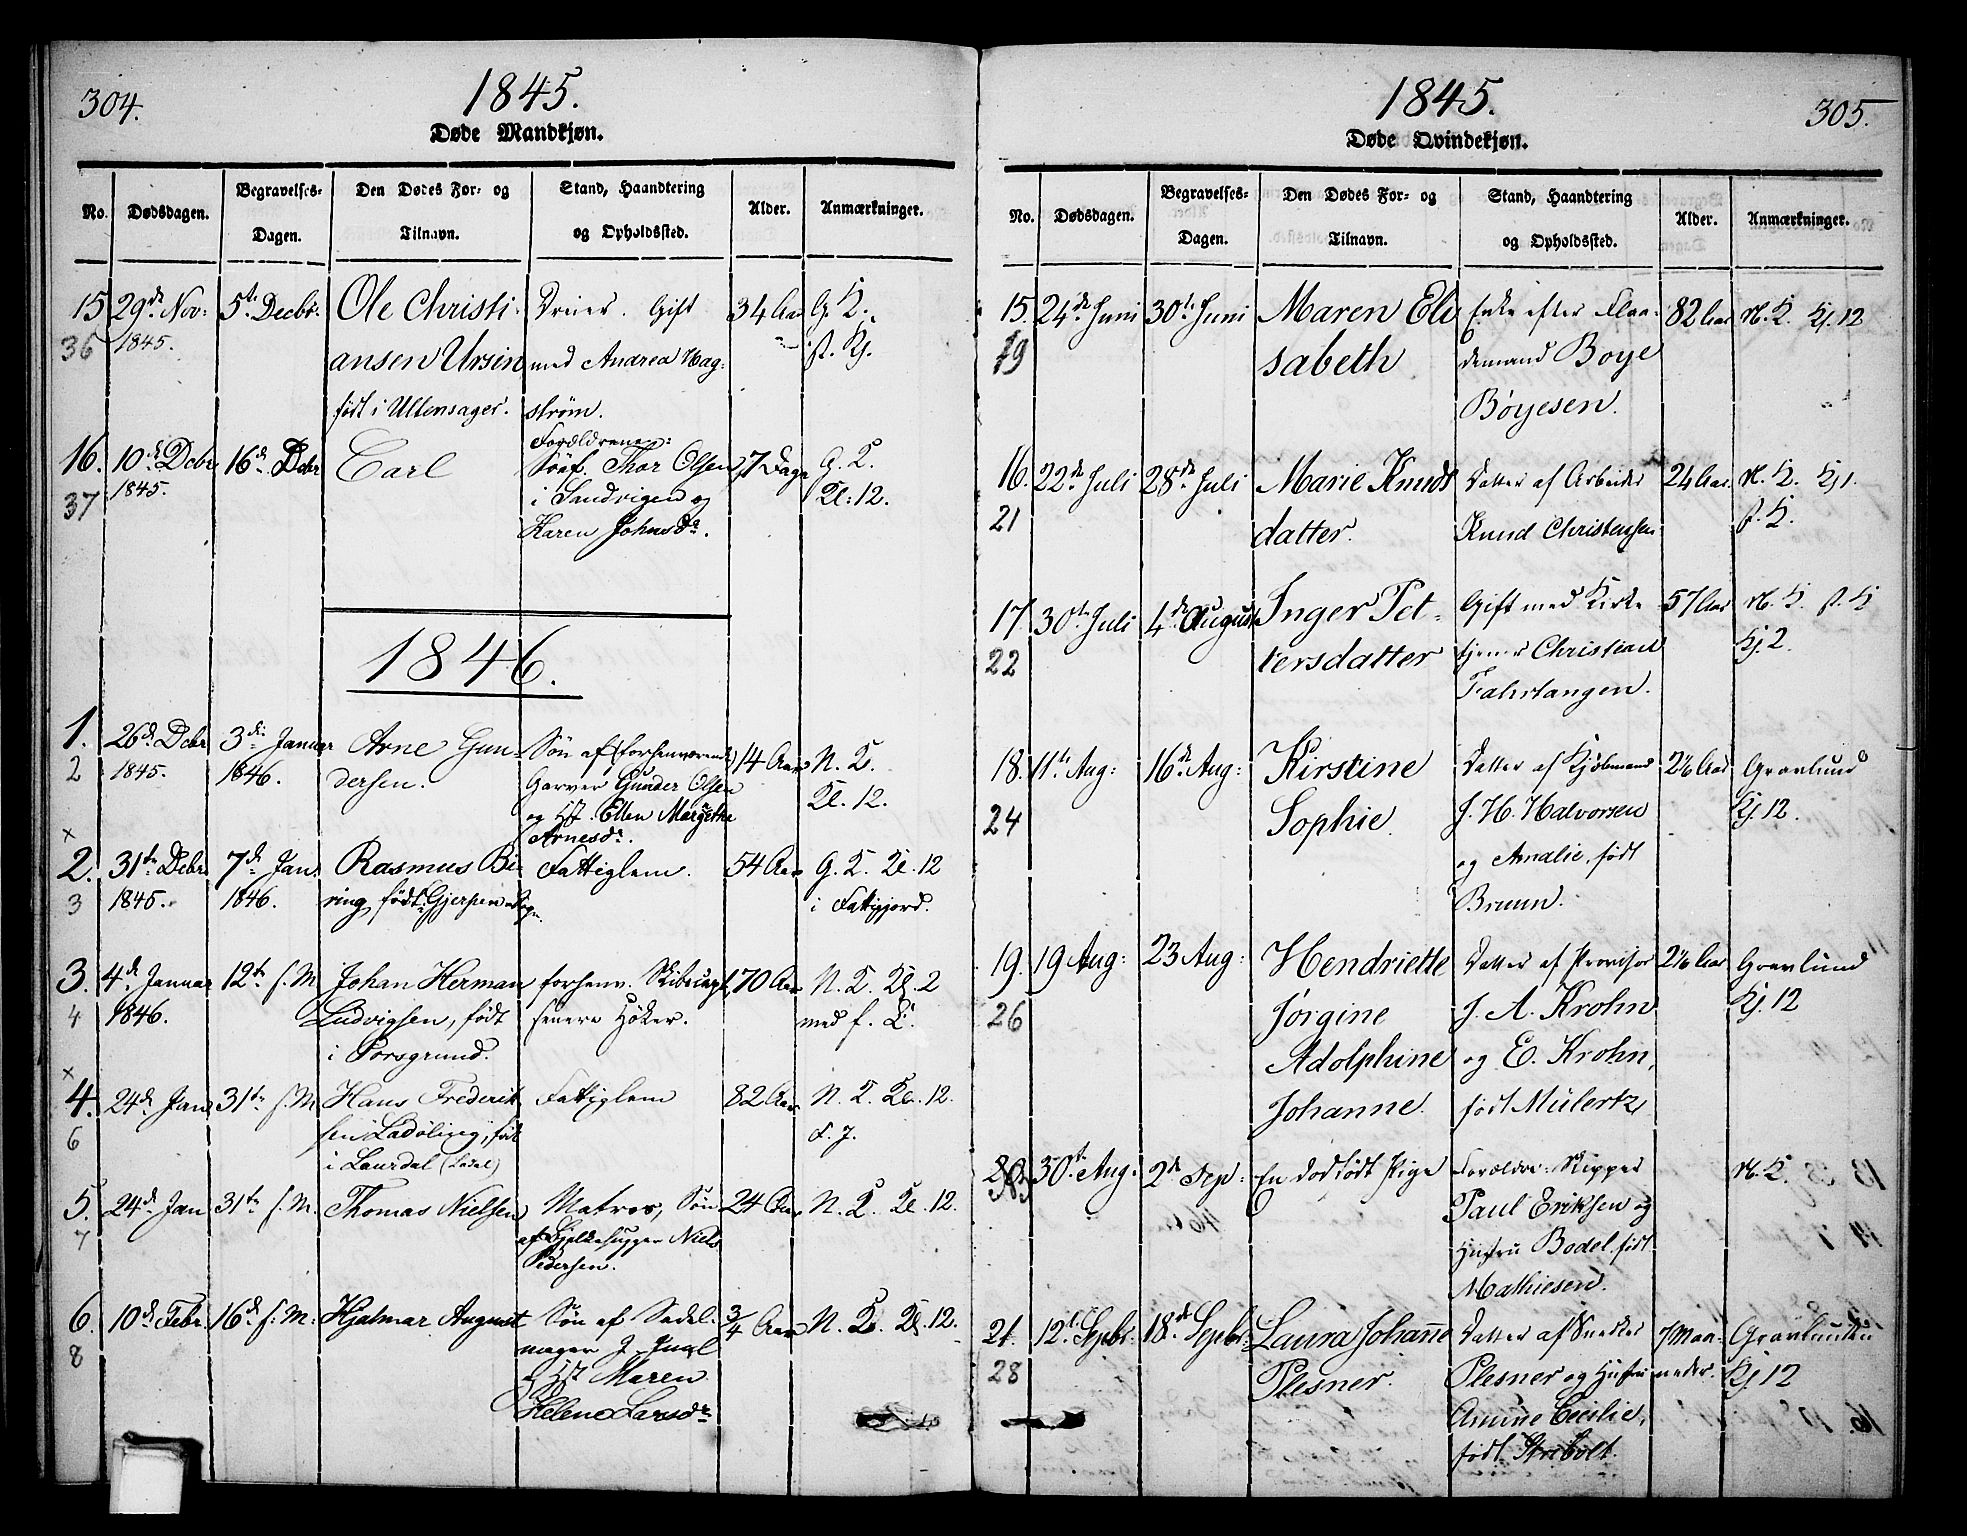 304.
1845.
Døde Mandkjøn.
No. Dødsdagen. Begravelses-Dagen. Den Dødes For- og Tilnavn. Stand, Haandtering og Opholdssted. Alder. Anmærkninger.
15 29de Nov: 5te Decbr: Ole Christi- Gift 34 Aar G. K.
36 1845. ansen Ursin med Andrea Hag-
født i Ullensager. strøm.
Forældrene:
16. 10de Debr 16de Debr Carl Søef. Thor Olsen 7 Dage G. K.
37 1845. i Sandvigen og Kl: 12.
Karen Johnsdr.
1846.
1. 26de Debr 3die Januar Arne Gun- Søn af forhenværende 14 Aar N. K.
2 1845. 1846. dersen. Garver Gunder Olsen Kl. 12.
og Hst. Ellen Margethe
Arnesdr.
×
2. 31te Debr 7de Jan. Rasmus Bi- Fattiglem. 54 Aar G. K. Kl. 12
3 1845. 1846. ring, født i Gjerpen Sogn. i Fattigjord.
3. 4de Januar 12te s. M. Johan Herman forhenv. 70 Aar N. K. Kl. 2
4 1846. Ludvigsen, født senere Høker. med f. K.
i Porsgrund.
×
4. 24de Jan 31te s. M. Hans Frederik- Fattiglem 82 Aar N. K. Kl. 12.
6 sen født F. J.
i Laurdal
5. 24de Jan 31te s. M. Thomas Nielsen Matros, Søn 24 Aar N. K. Kl. 12.
7 af Bjelkehugger Niels
Pedersen.
6. 10de Febr. 16de s. M: Hjalmar August Søn af Sadel- 3/4 Aar N. K. Kl. 12.
8 mager J.
og Hst Maren
Helene Larsdr.
1845.
305.
Døde Qvindekjøn.
No. Dødsdagen. Begravelses-Dagen. Den Dødes For- og Tilnavn. Stand, Haandtering og Opholdssted. Alder. Anmærkninger.
15. 24de Juni 30te Juni Maren Eli- Enke efter Flaa- 82 Aar N. K. Kl. 12
19 sabeth demand Boye
Böyesen.
16. 22de Juli 28de Juli Marie Knuds- Datter af Arbeider 24 Aar N. K. Kl 1.
21 datter. Knud Christensen f. K.
17. 30te Juli 4de August Inger Pet- Gift med Kirke- 57 Aar N. K. f. K
22 tersdatter tjener Christian Kl. 2.
Fahrtangen.
18. 11te Aug: 16de Aug: Kirstine Datter af Kjøbmand 2½ Aar Gravlund
24 Sophie. J. H. Halvorsen Kl. 12.
og Amalie, født
Bruun.
19. 19 Aug: 23 Aug: Hendriette Datter af Provisor 2½ Aar Gravlund
26 Jörgine J. A. Krohn Kl. 12
Adolphine og E. Krohn,
Johanne. født Mülertz
20. 30te Aug: 2de Sep: En dødfødt Pige Forældre: Skipper N. K.
Paul Eriksen og
Hustru Bodel, født
Mathiesen.
21. 12te Septbr: 18de Septbr: Laura Johanne Datter af Snedker 7 Maa- Gravlunden
28 Plesner. Plesner og Hustru neder. Kl 12
Amine Cecilie,
født Stribolt.